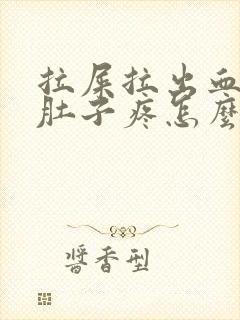 拉屎拉出血
肚子疼怎麼
醬香型